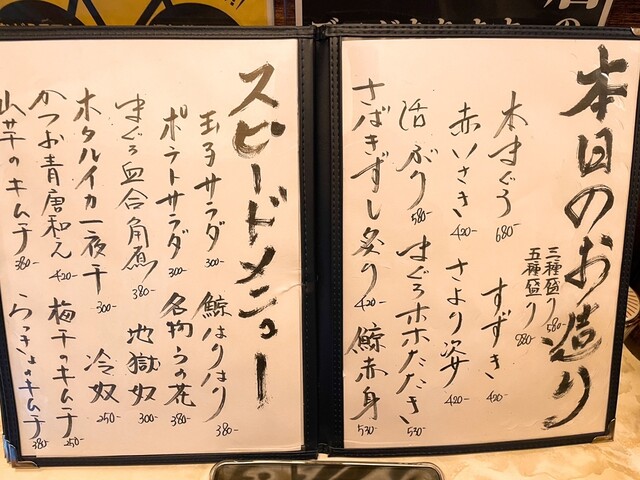 本日のお造り
三種盛り 580-
五種盛り 980-
本まぐろ 680-
すずき 420-
赤いさき 420-
さより姿 420-
活ぶり 580-
まぐろホホたたき 530-
さばきずし炙り 420-
鯨赤身 530-
スピードメニュー
玉子サラダ 300-
鯨はりはり 380-
ポテトサラダ 300-
名物うの花 380-
まぐろ血合角煮 380-
地獄奴 300-
ホタルイカ一夜干 300-
冷奴 250-
かつお青唐和え 420-
梅干のキムチ 250-
山芋のキムチ 380-
らっきょのキムチ 380-